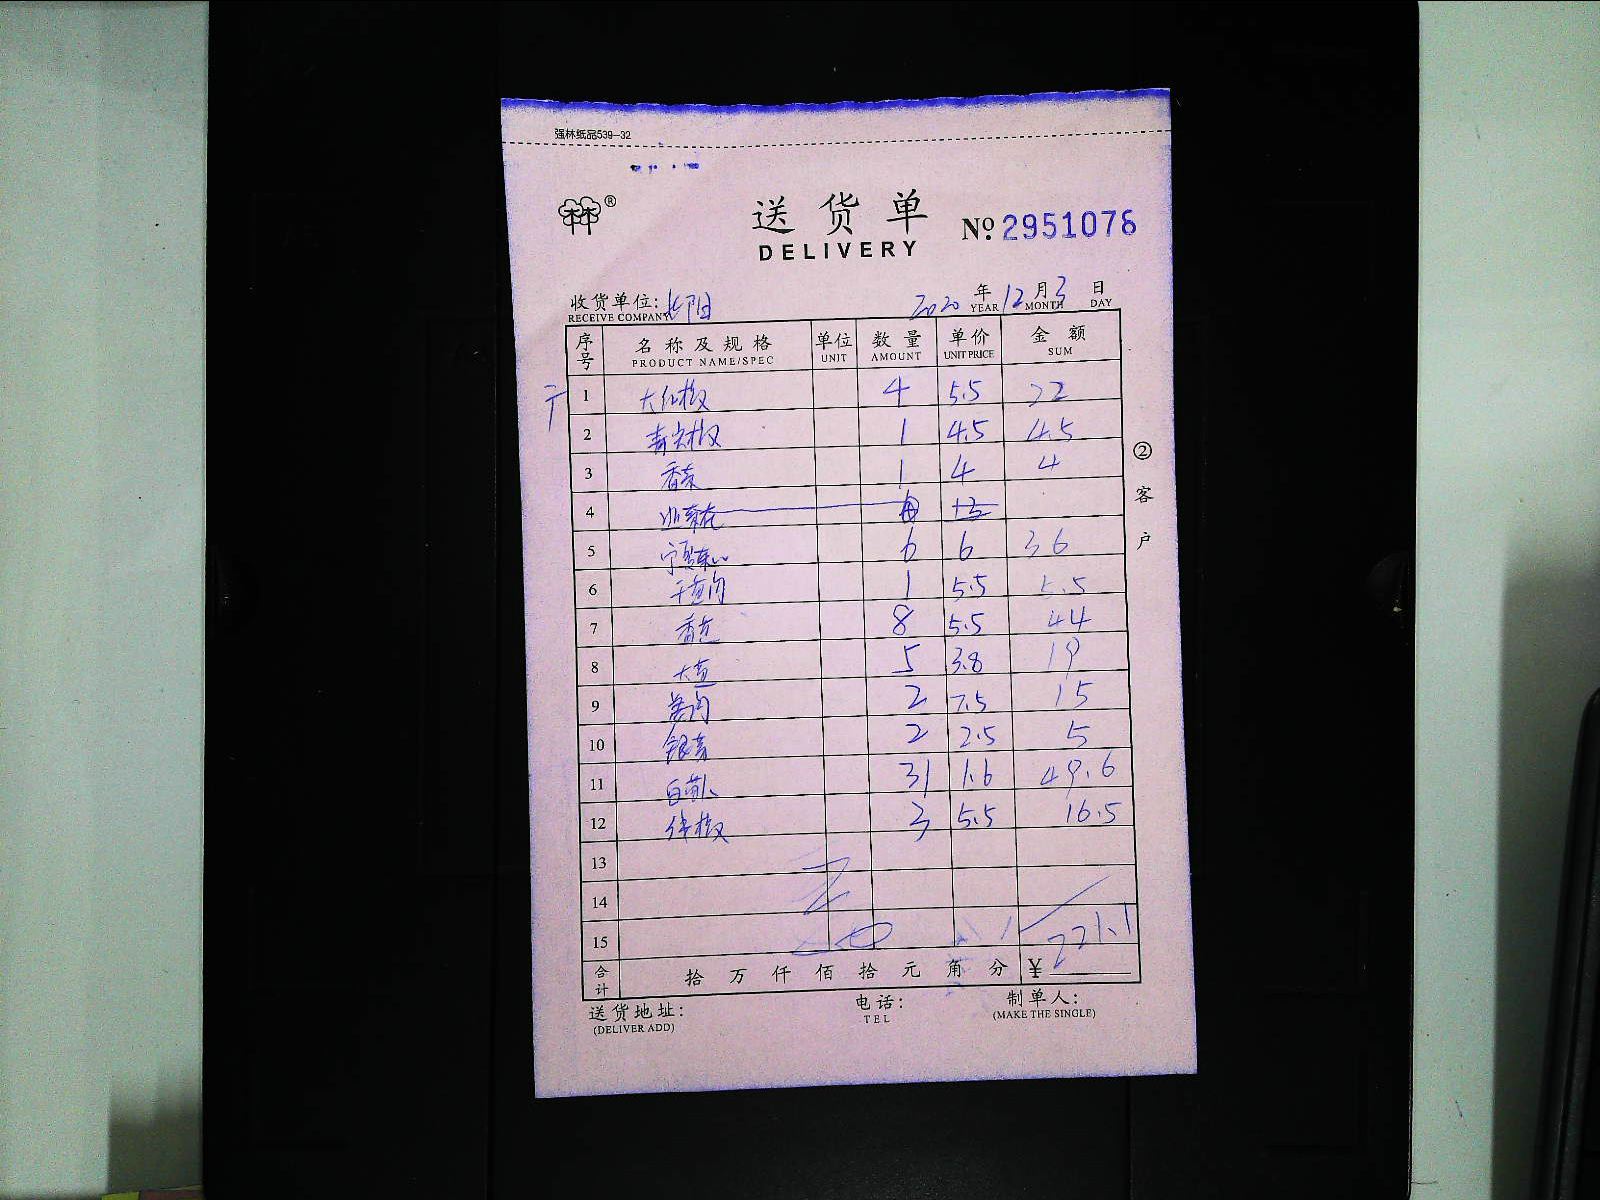 强林纸品539-32
®
送货单
DELIVERY
No 2951076
收货单位: 2020年12月3日
RECEIVE COMPANY YEAR MONTH DAY
序号 名称及规格 单位 数量 单价 金额
PRODUCT NAME/SPEC UNIT AMOUNT UNIT PRICE SUM
1 大红椒 4 5.5 22
2 青尖椒 1 4.5 4.5
3 香菜 1 4 4
4
5 宁夏菜心 6 6 36
6 1 5.5 5.5
7 香芹 8 5.5 44
8 5 3.8 19
9 2 7.5 15
10 银芽 2 2.5 5
11 31 1.6 49.6
12 3 5.5 16.5
13
14
15
合计 拾万仟佰拾元角分 ¥ 221.1
②客户
送货地址: 电话: 制单人:
(DELIVER ADD) TEL (MAKE THE SINGLE)